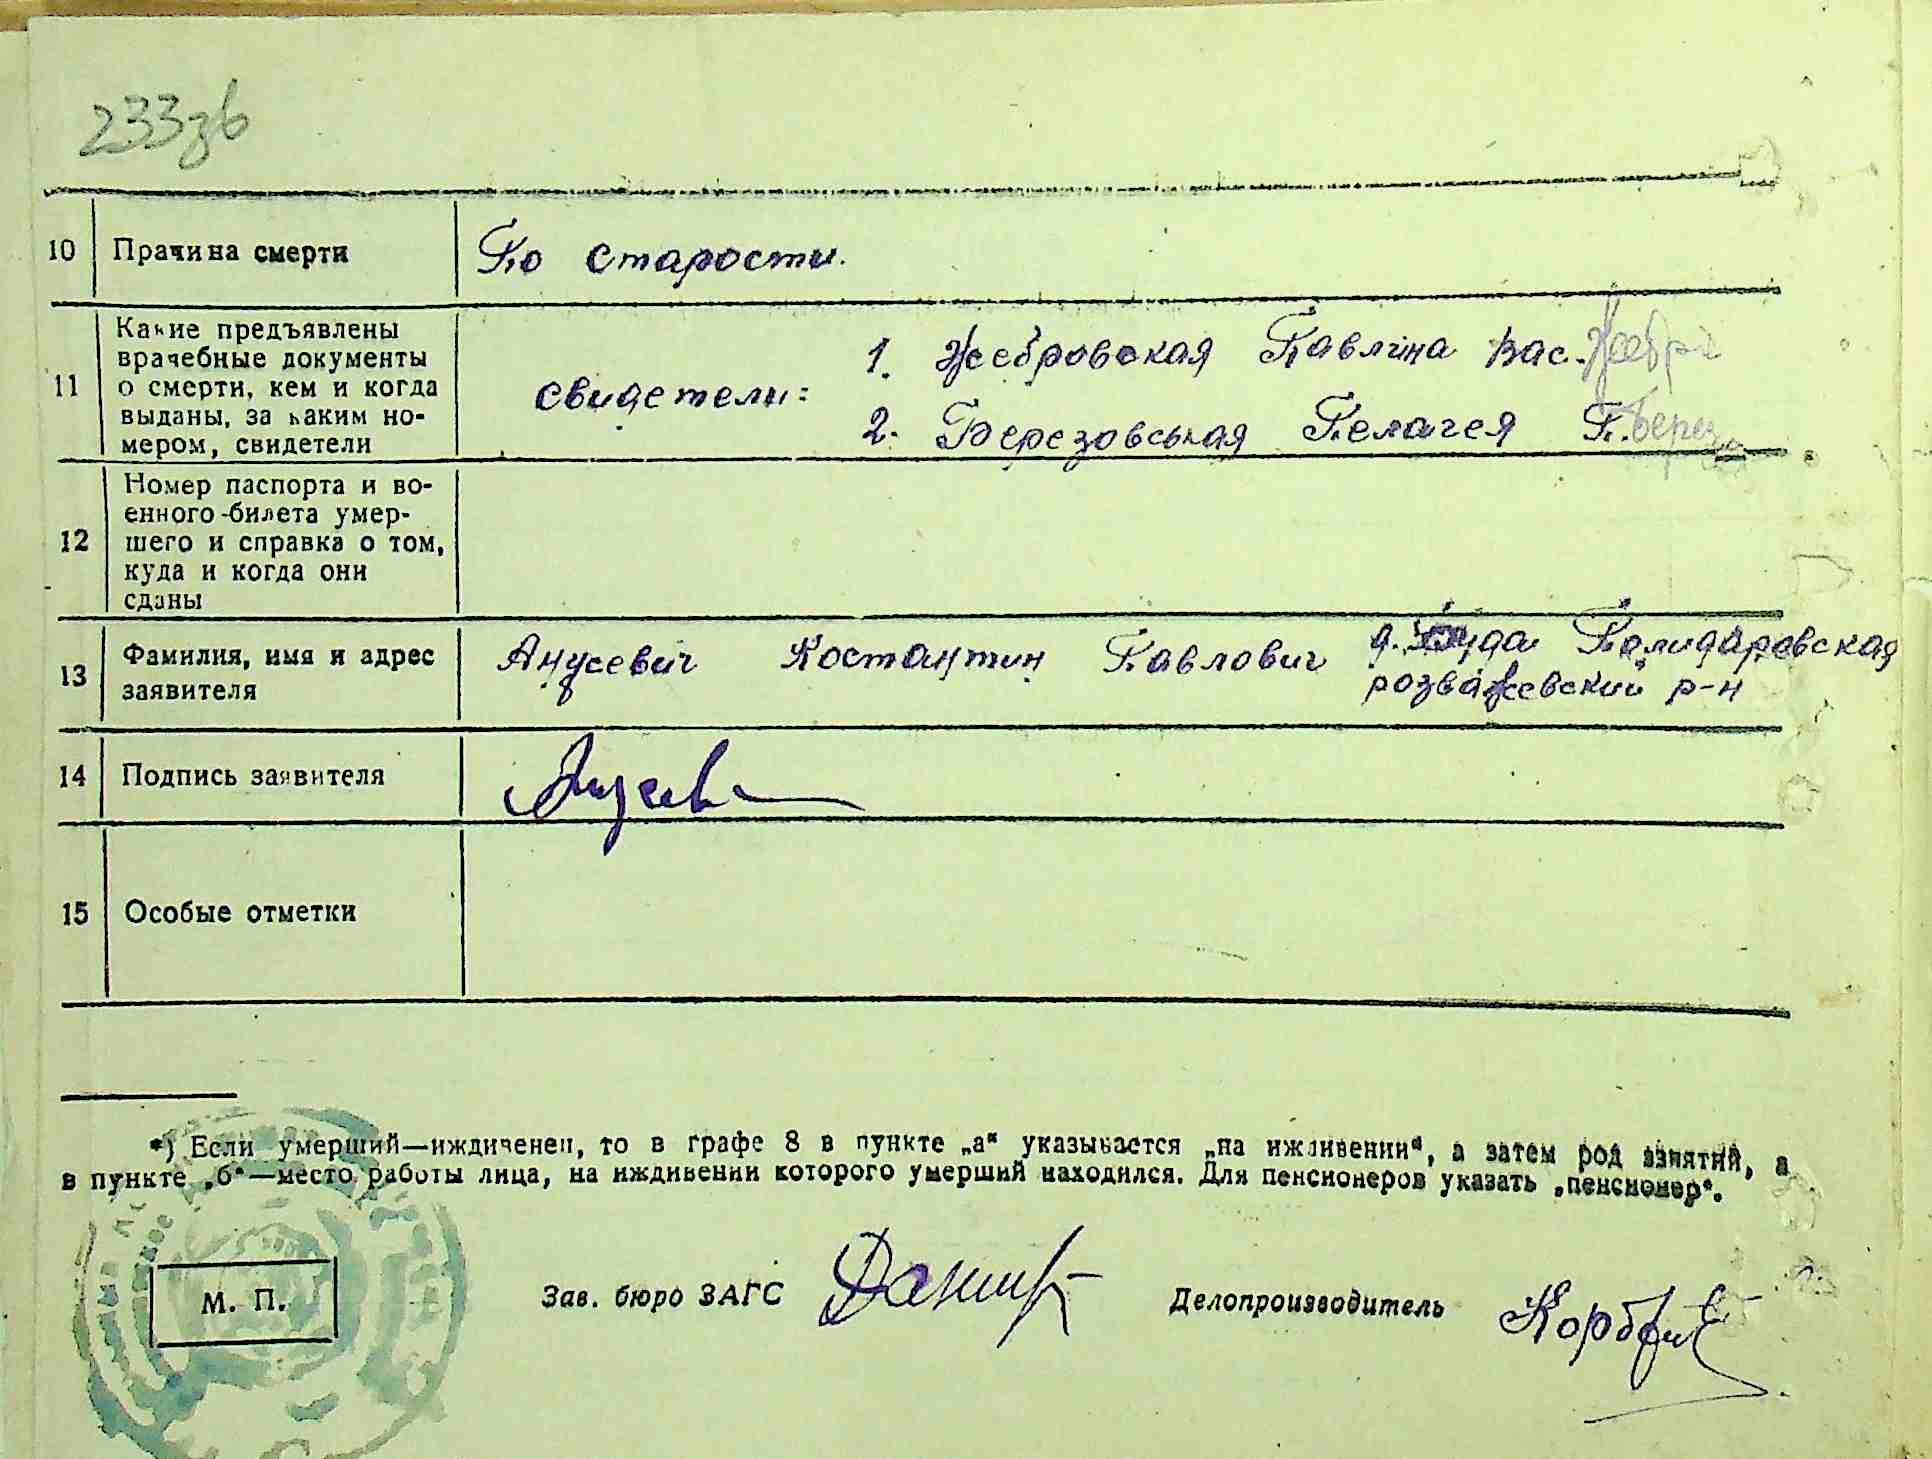 233зв
10 Прачина смерти По старости.
11 Какие предъявлены
врачебные документы
о смерти, кем и когда
выданы, за каким но-
мером, свидетели
свидетели:
1. Жебровская Павлина Вас. Жебр
2. Березовськая Пелагея П. Берез
12 Номер паспорта и во-
енного билета умер-
шего и справка о том,
куда и когда они
сданы
13 Фамилия, имя и адрес
заявителя
Анусевич Костантин Павлович д. Буда Полидаровская
розважевский р-н
14 Подпись заявителя Анусев
15 Особые отметки
*) Если умерший—иждивенец, то в графе 8 в пункте „а“ указывается „на иждивении“, а затем род занятий, а
в пункте „б“—место работы лица, на иждивении которого умерший находился. Для пенсионеров указать „пенсионер“.
М. П.
Зав. бюро ЗАГС
Делопроизводитель